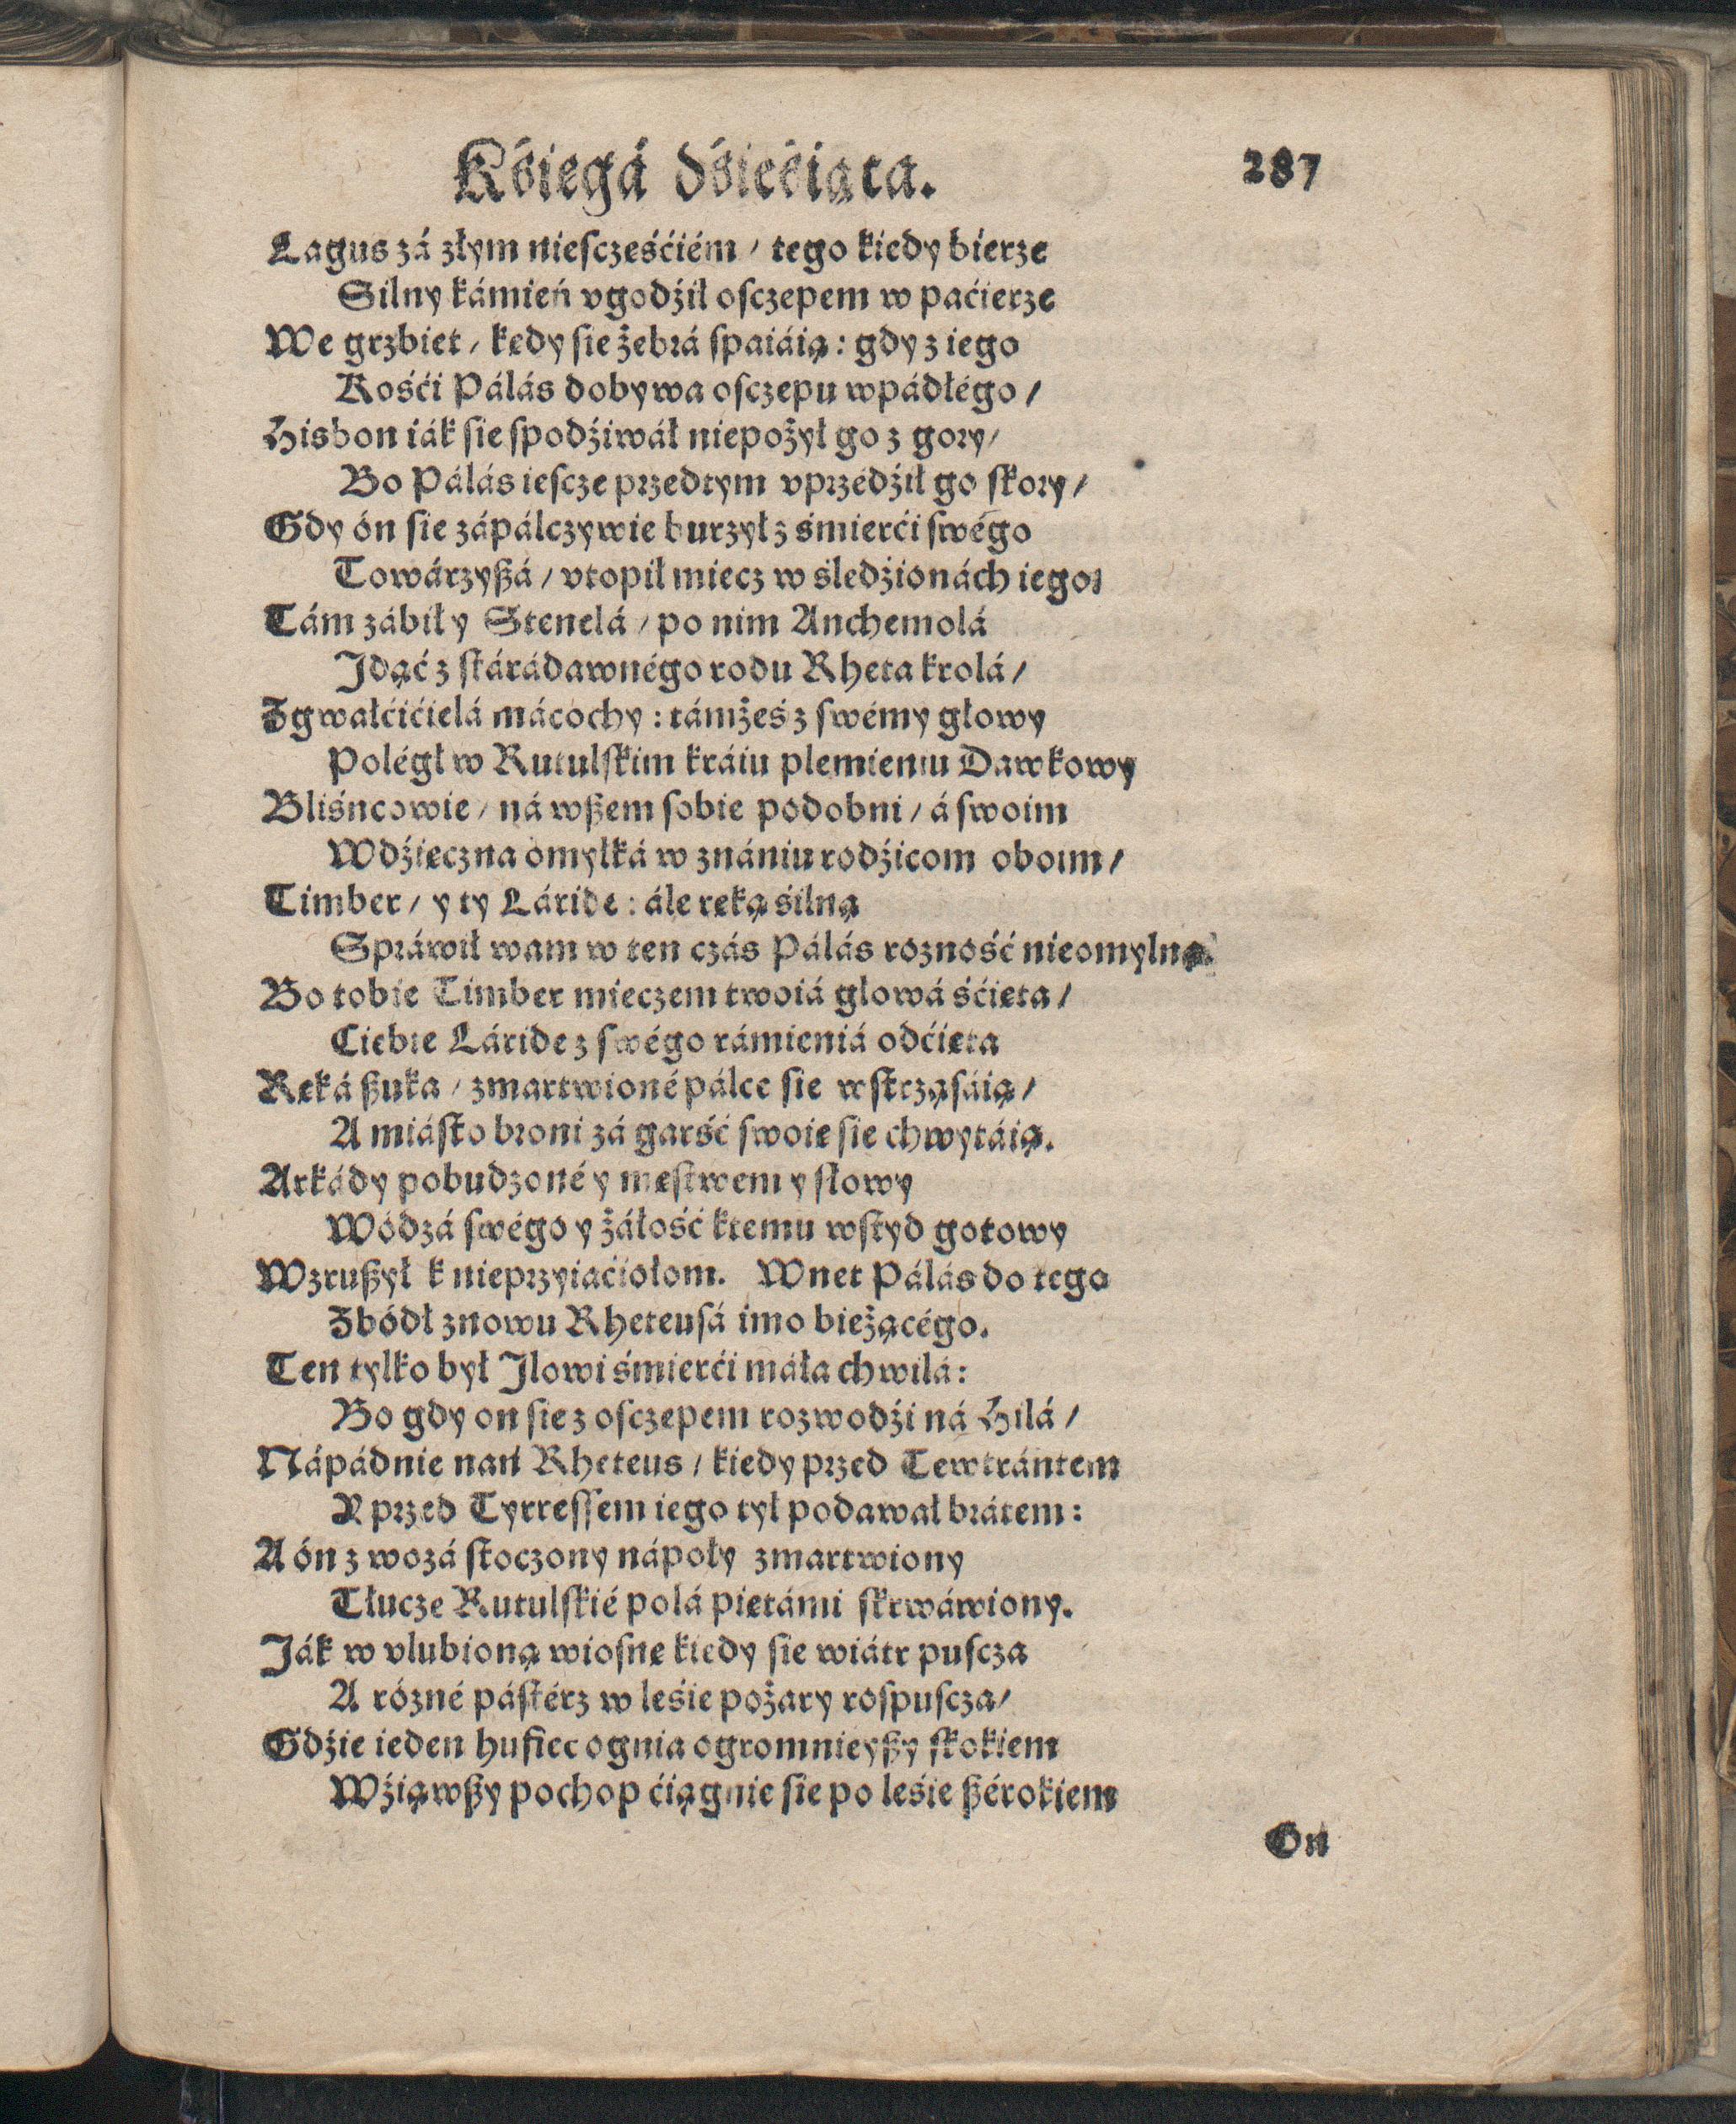 Kśięgá dśieśiąta. 287
Lagus zá złym niesczęśćiém / tego kiedy bierze
Silny kámień vgodźił osczepem w paćierze
We grzbiet / kędy sie żebrá spaiáią : gdy z iego
Kośći Pálás dobywa osczepu wpádłégo /
Hisbon iák sie spodźiwáł niepożył go z gory /
Bo Pálás iescze przedtym vprzédźił go skory /
Gdy ón sie zápálczywie burzył z śmierći swégo
Towárzyßá / vtopił miecz w śledźionách iego:
Tám zábił y Stenelá / po nim Anchemolá
Idąć z stárádawnégo rodu Rheta krolá /
Zgwałćićielá mácochy : támżeś z swémy głowy
Poległ w Rutulskim kráiu plemieniu Dawkowy
Bliśncowie / ná wßem sobie podobni / á swoim
Wdźięczna omyłká w znániu rodźicom oboim /
Timber / y ty Láride : ále ręką śilną
Spráwił wam w ten czás Pálás rozność nieomylną.
Bo tobie Timber mieczem twoiá głowá śćięta /
Ciebie Láride z swégo rámieniá odćięta
Ręká ßuka / zmartwioné pálce sie wstrząsáią /
A miásto broni zá garść swoię sie chwytáią.
Arkády pobudzoné y męstwem y słowy
Wódzá swégo y żáłość ktemu wstyd gotowy
Wzrußył k nieprzyiaćiołom. Wnet Pálás do tego
Zbódł znowu Rheteusá imo bieżącégo.
Ten tylko był Ilowi śmierći máła chwilá :
Bo gdy on sie z osczepem rozwodźi ná Hilá /
Nápádnie nań Rheteus / kiedy przed Tewtrántem
Y przed Tyrressem iego tył podawał brátem :
A ón z wozá stoczony nápoły zmartwiony
Tłucze Rutulskié polá piętámi skrwáwiony.
Iák w vlubioną wiosnę kiedy sie wiátr puscza
A rózné pástérz w leśie pożary rospuscza /
Gdźie ieden hufiec ognia ogromnieyßy skokiem
Wźiąwßy pochop ćiągnie sie po leśie ßérokiem
On